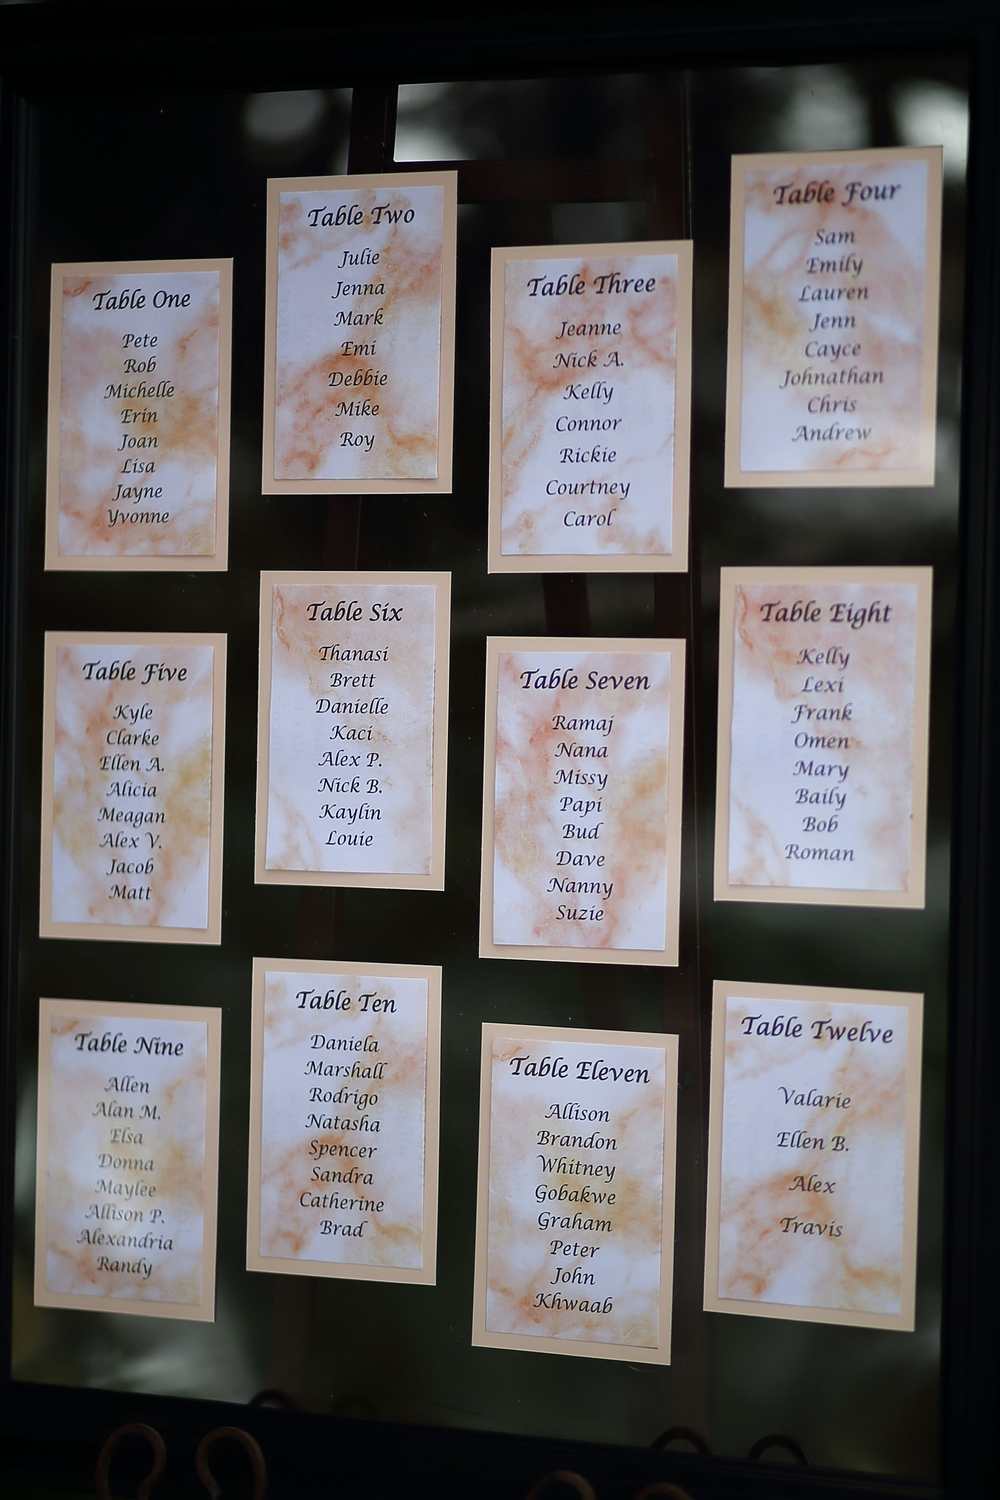 Table One
Pete
Rob
Michelle
Erin
Joan
Lisa
Jayne
Yvonne
Table Two
Julie
Jenna
Mark
Emi
Debbie
Mike
Roy
Table Three
Jeanne
Nick A.
Kelly
Connor
Rickie
Courtney
Carol
Table Four
Sam
Emily
Lauren
Jenn
Cayce
Johnathan
Chris
Andrew
Table Five
Kyle
Clarke
Ellen A.
Alicia
Meagan
Alex V.
Jacob
Matt
Table Six
Thanasi
Brett
Danielle
Kaci
Alex P.
Nick B.
Kaylin
Louie
Table Seven
Ramaj
Nana
Missy
Papi
Bud
Dave
Nanny
Suzie
Table Eight
Kelly
Lexi
Frank
Omen
Mary
Baily
Bob
Roman
Table Nine
Allen
Alan M.
Elsa
Donna
Maylee
Allison P.
Alexandria
Randy
Table Ten
Daniela
Marshall
Rodrigo
Natasha
Spencer
Sandra
Catherine
Brad
Table Eleven
Allison
Brandon
Whitney
Gobakwe
Graham
Peter
John
Khwaab
Table Twelve
Valarie
Ellen B.
Alex
Travis